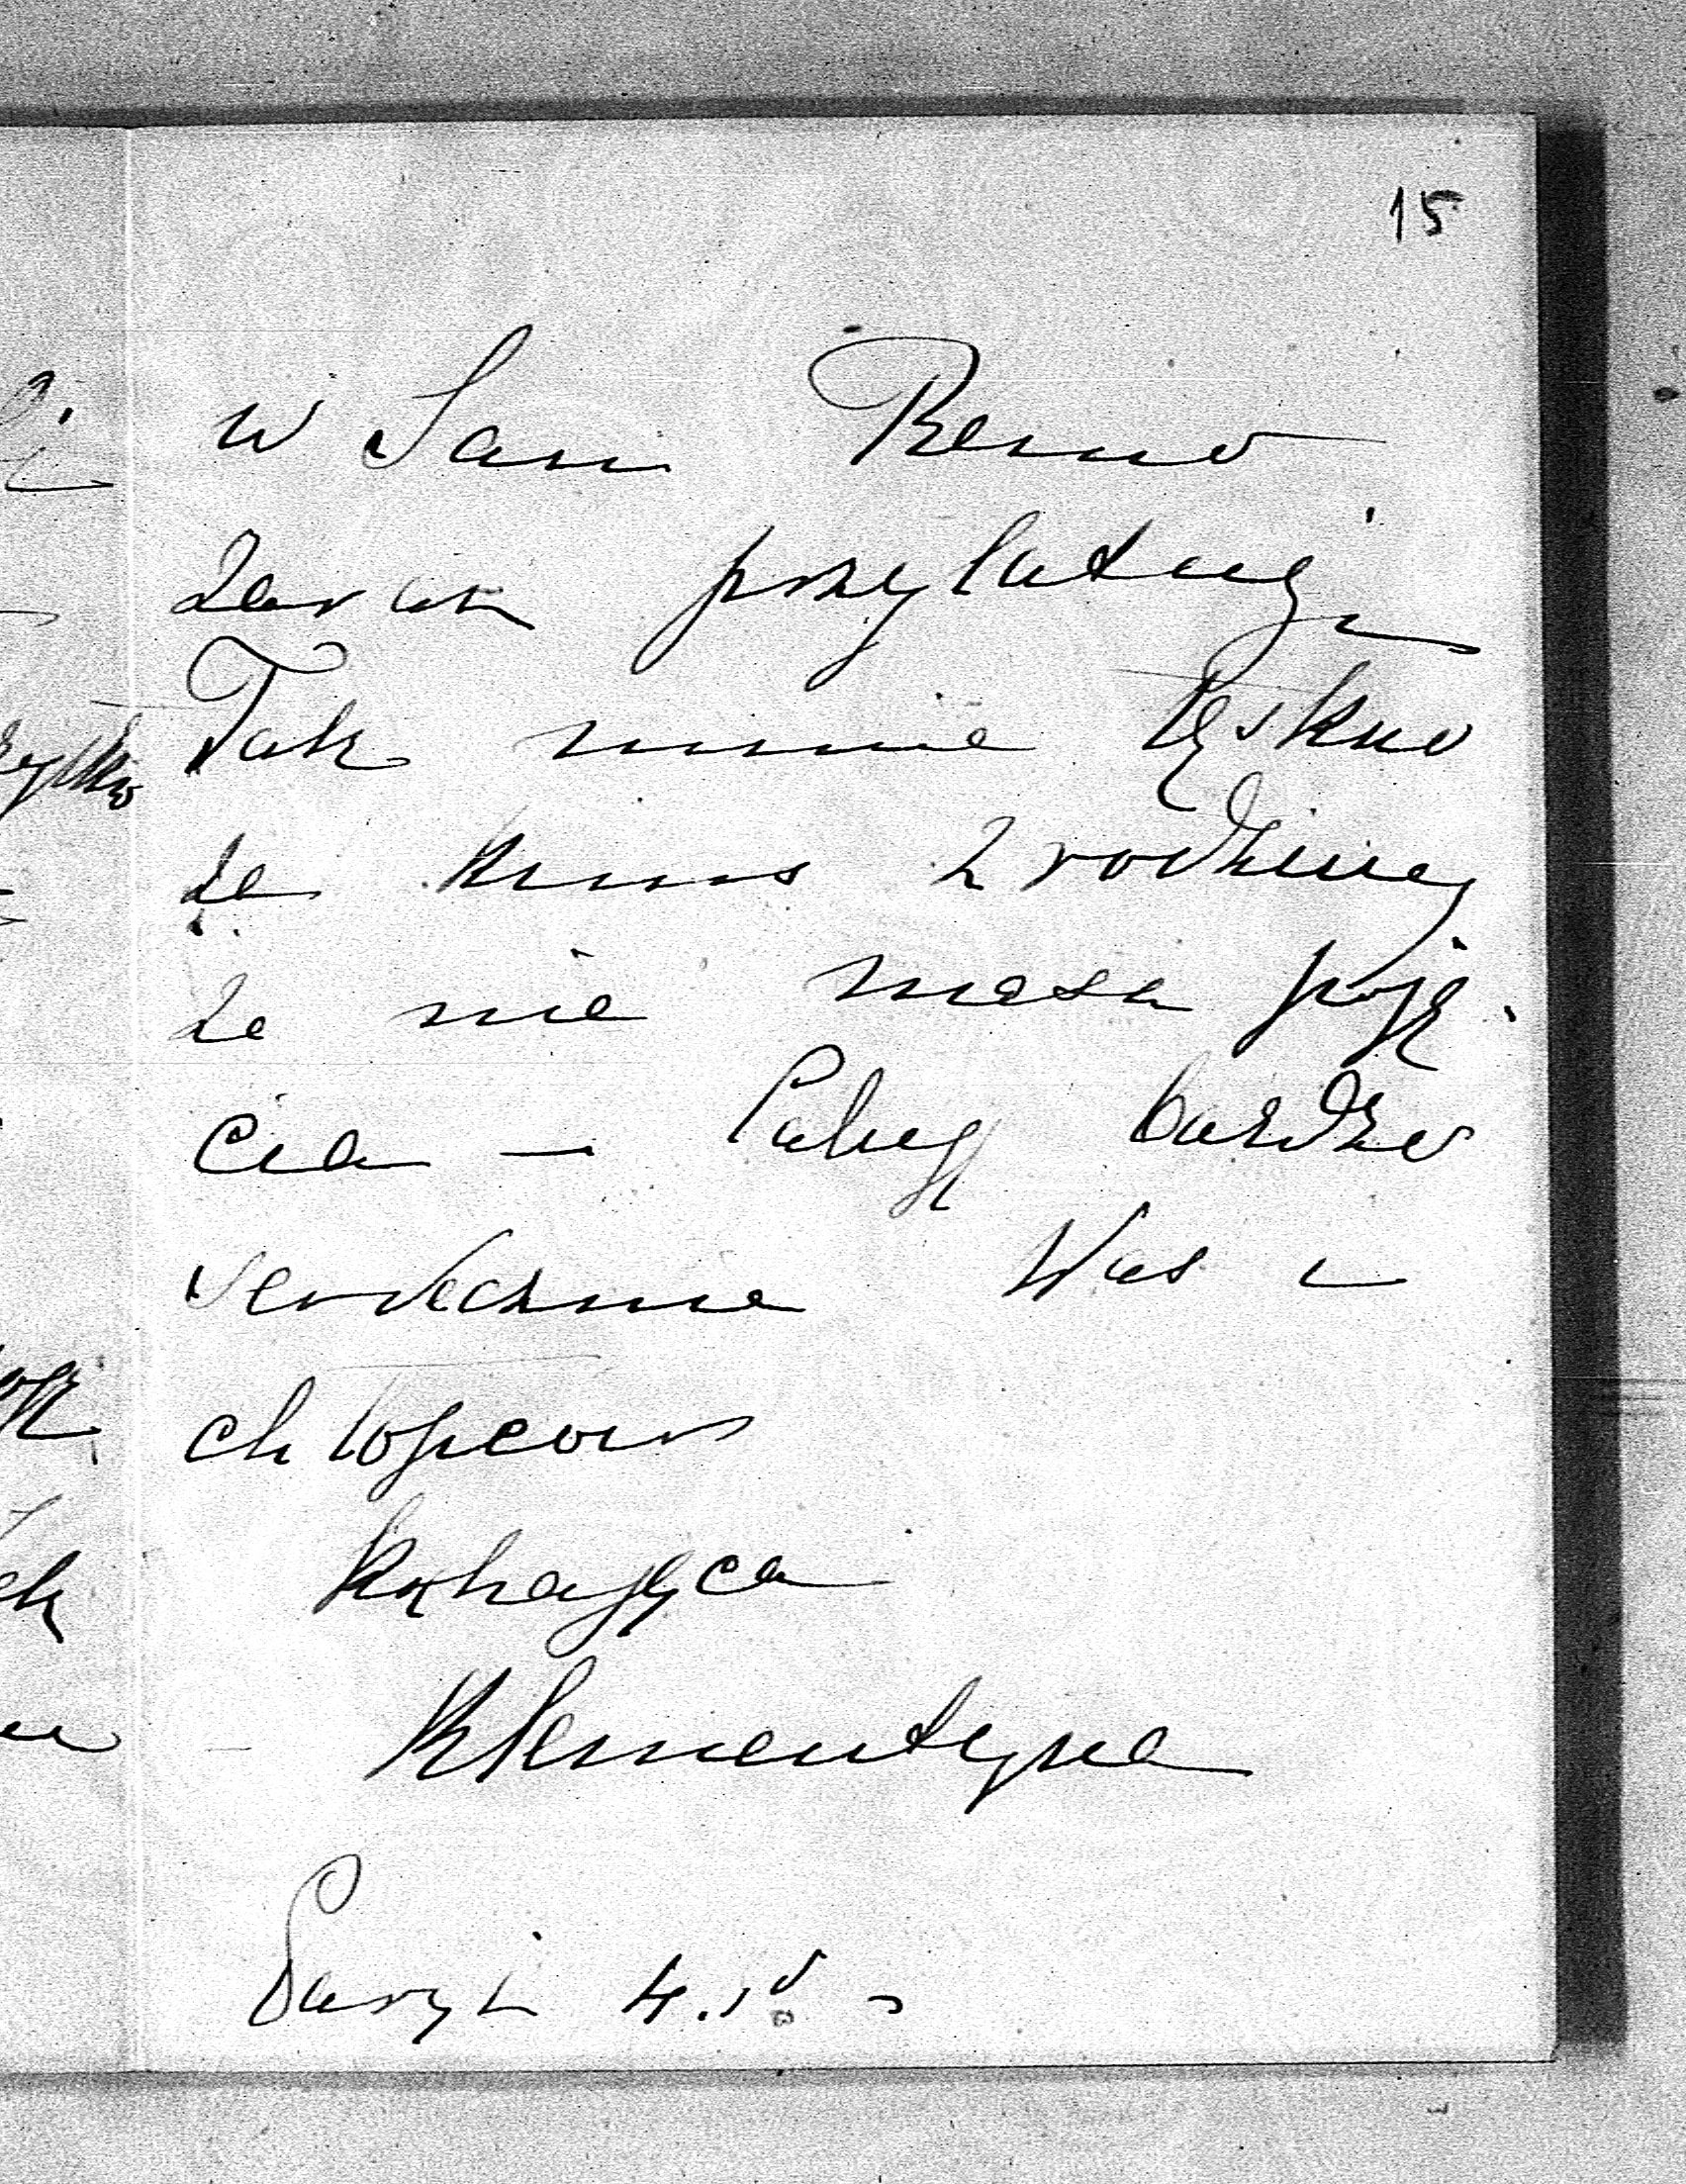 15
w San Remo
zaraz przylatuję
Tak mnie tęskno
za kims z rodziny
że nie masz poję-
cia — Całuję bardzo
serdecznie Was i
chłopcow
Kochająca
Klementyna
Paryż 4.